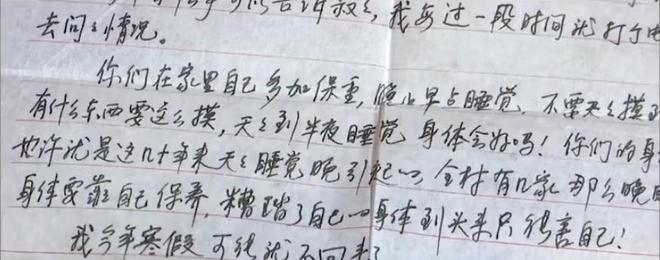 我每过一段时间就打个电
去问々情况。
你们在家里自己多加保重,晚上早点睡觉,不要天々摸到
有什么东西要这么摸,天々到半夜睡觉身体会好吗!你们的身
也许就是这几十年来天々睡觉晚引起的,全村有几家那么晚
身体要靠自己保养,糟蹋了自己的身体到头来只能害自己!
我今年寒假可能就不回来了